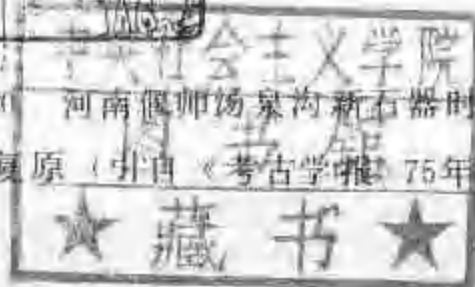 社会主义学院
河南偃师汤泉沟新石器时
图书馆
复原（引自《考古学报》75年
★ 藏 书 ★